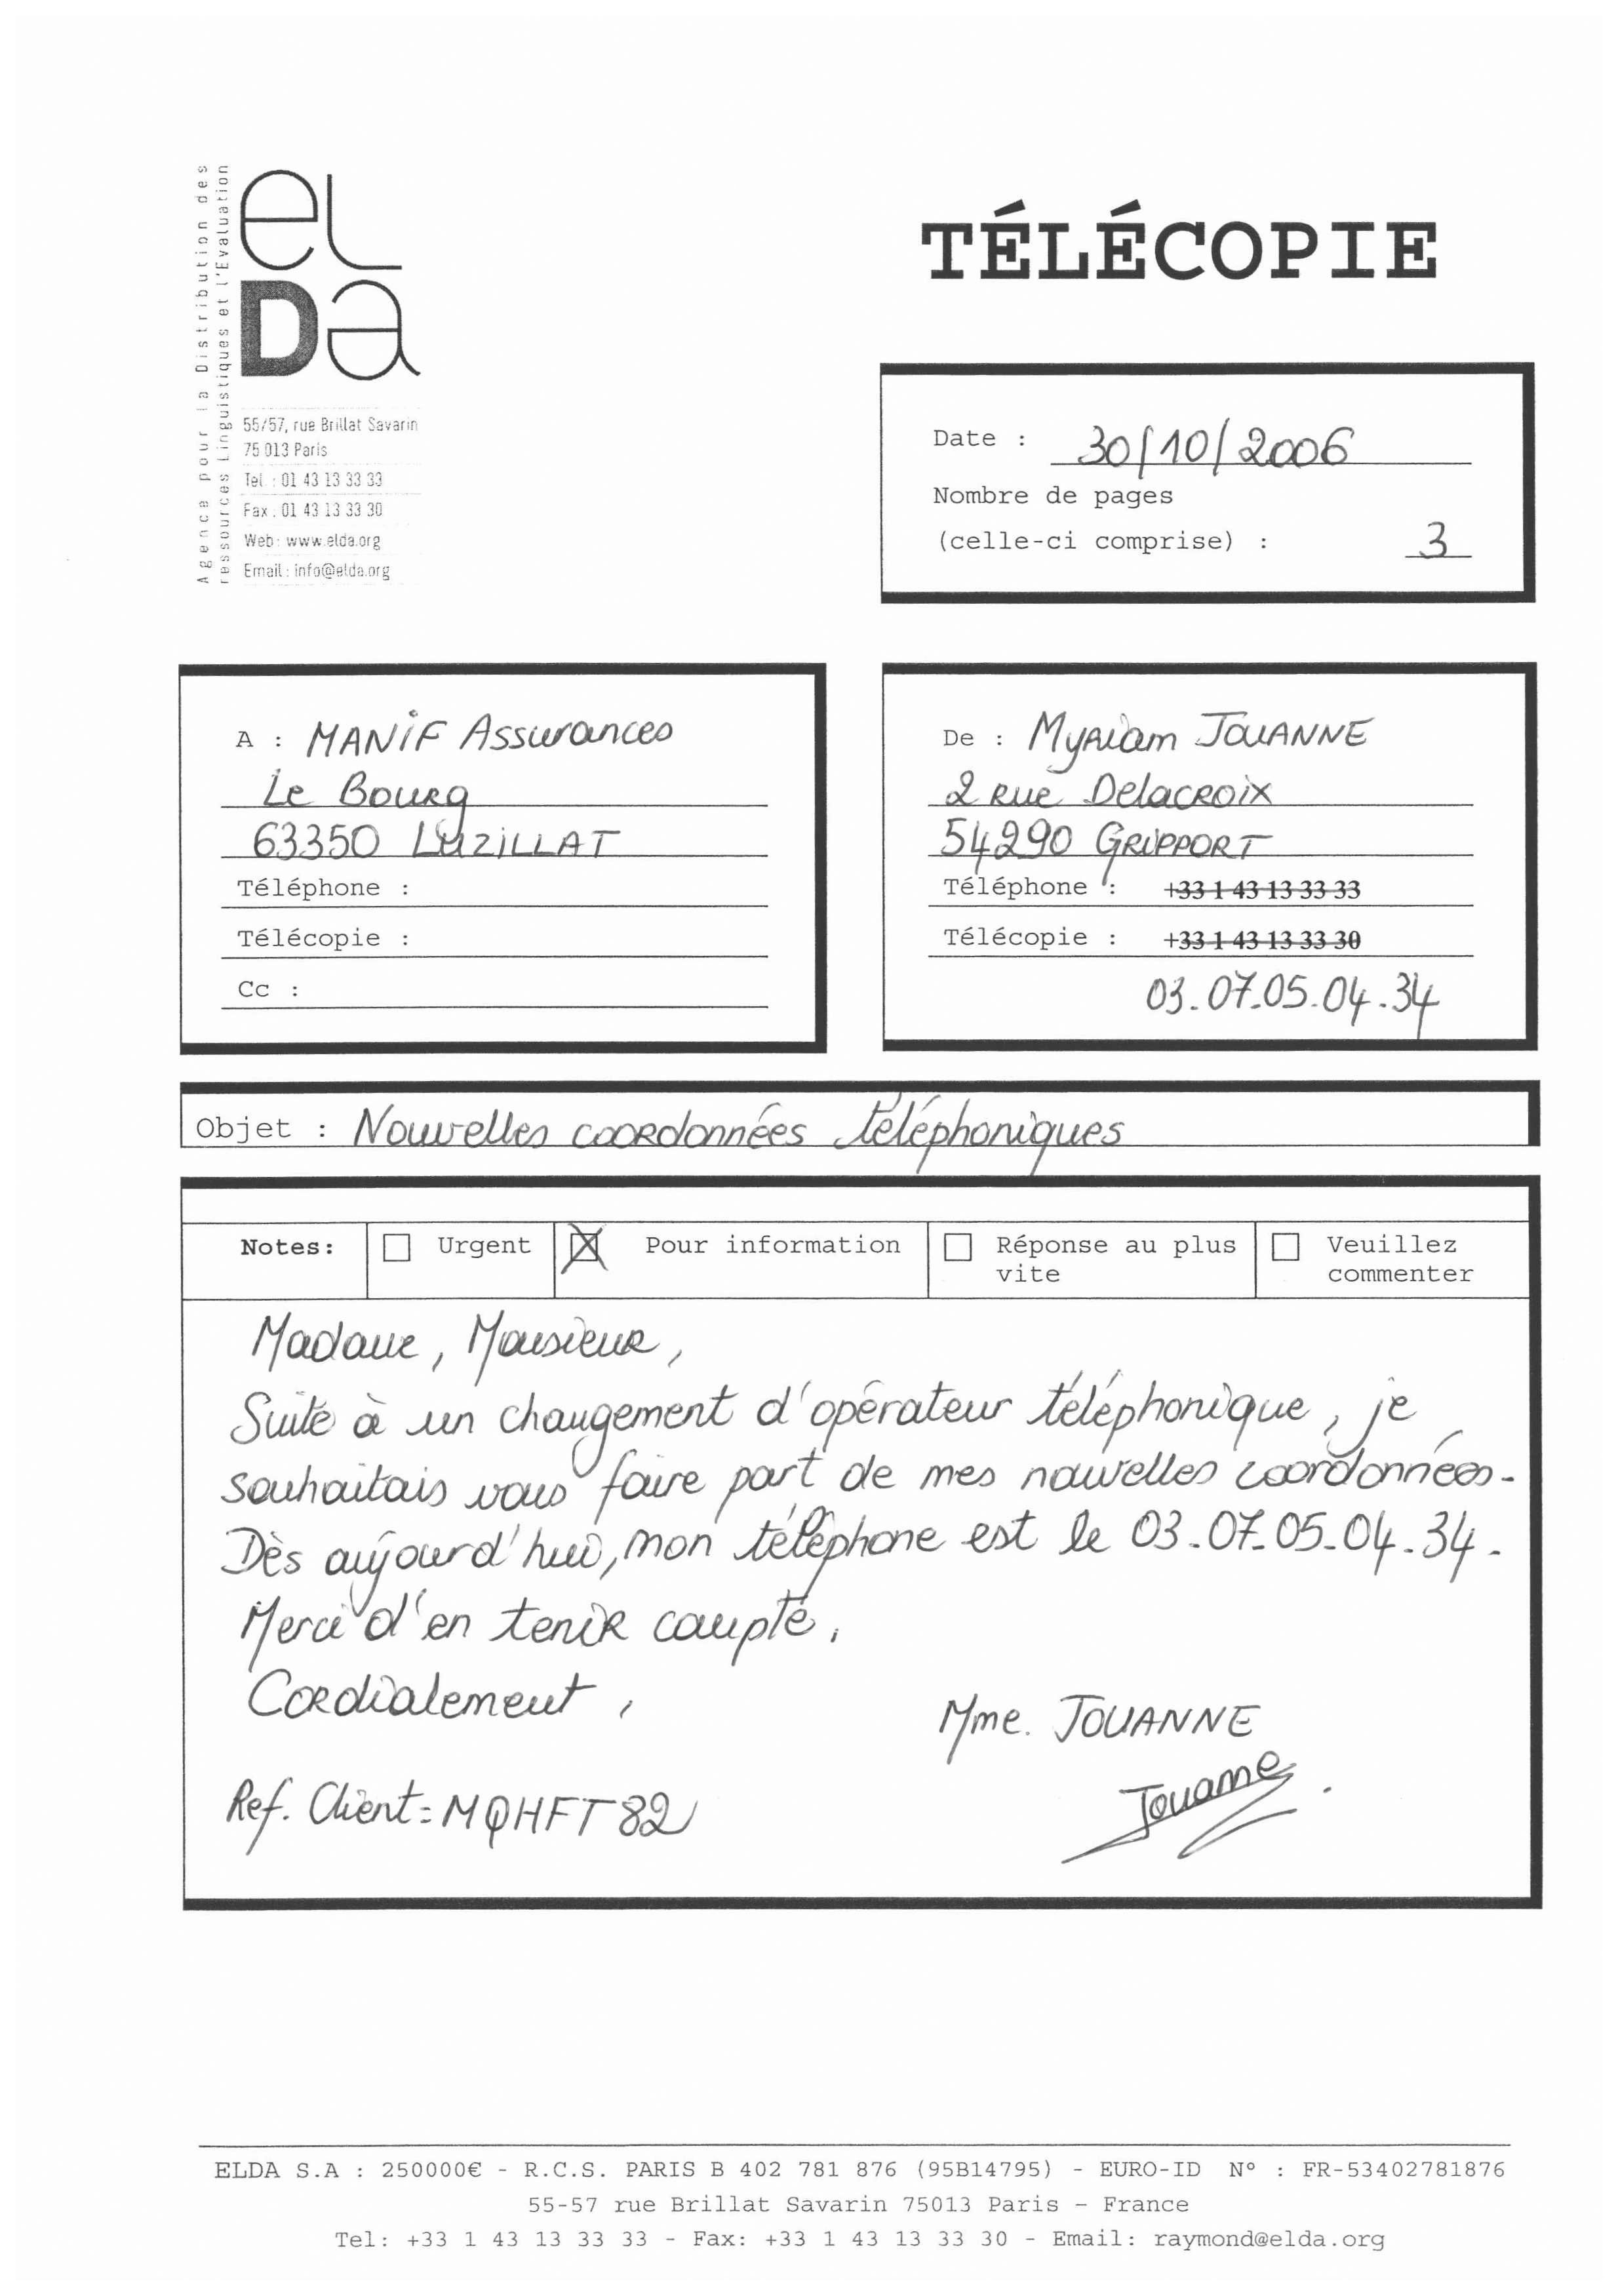 Agence pour la Distribution des
ressources Linguistiques et l'Evaluation
eL
Da
55/57, rue Brillat Savarin
75 013 Paris
Tel. : 01 43 13 33 33
Fax : 01 43 13 33 30
Web : www.elda.org
Email : info@elda.org
TÉLÉCOPIE
Date : 30/10/2006
Nombre de pages
(celle-ci comprise) : 3
A : MANIF Assurances
Le Bourg
63350 LUZILLAT
Téléphone :
Télécopie :
Cc :
De : Myriam JOUANNE
2 rue Delacroix
54290 GRIPPORT
Téléphone : +33 1 43 13 33 33
Télécopie : +33 1 43 13 33 30
03.07.05.04.34
Objet : Nouvelles coordonnées téléphoniques
Notes: Urgent Pour information Réponse au plus vite Veuillez commenter
Madame, Monsieur,
Suite à un changement d'opérateur téléphonique, je
souhaitais vous faire part de mes nouvelles coordonnées.
Dès aujourd'hui, mon téléphone est le 03.07.05.04.34.
Merci d'en tenir compte.
Cordialement,
Mme. JOUANNE
Jouanne
Ref. Client = MQHFT82
ELDA S.A : 250000€ - R.C.S. PARIS B 402 781 876 (95B14795) - EURO-ID N° : FR-53402781876
55-57 rue Brillat Savarin 75013 Paris – France
Tel: +33 1 43 13 33 33 - Fax: +33 1 43 13 33 30 - Email: raymond@elda.org